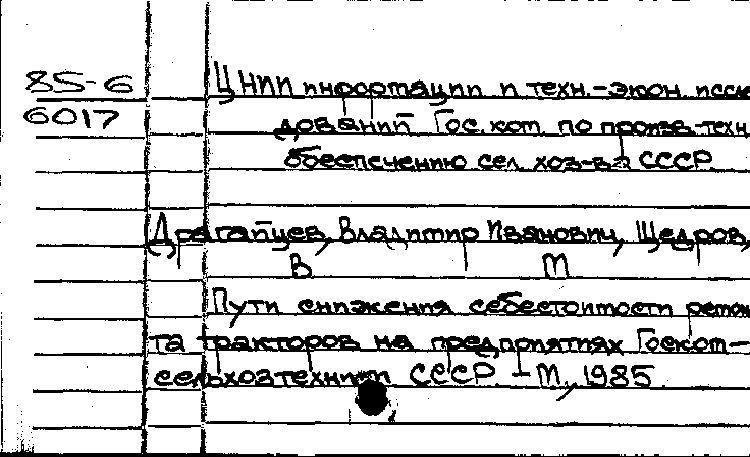 85-6
6017
ЦНИИ информации и техн.-экон. иссле
дований Гос. ком. по произв.-техн.
обеспечению сел. хоз-ва СССР.
Драгайцев, Владимир Иванович, Щедров,
В М
Пути снижения себестоимости ремон
та тракторов на предприятиях Госком-
сельхозтехники СССР. – М., 1985.